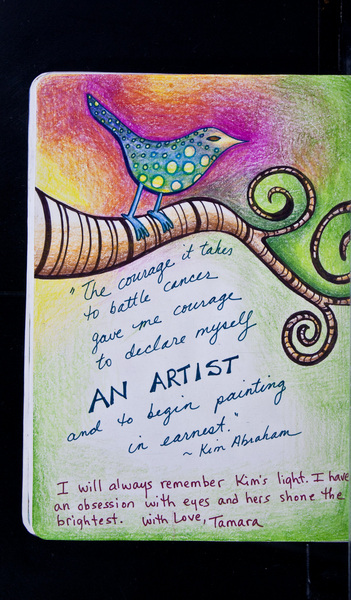 "The courage it takes
to battle cancer
gave me courage
to declare myself
AN ARTIST
and to begin painting
in earnest."
~ Kim Abraham
I will always remember Kim's light. I have
an obsession with eyes and hers shone the
brightest. with Love, Tamara